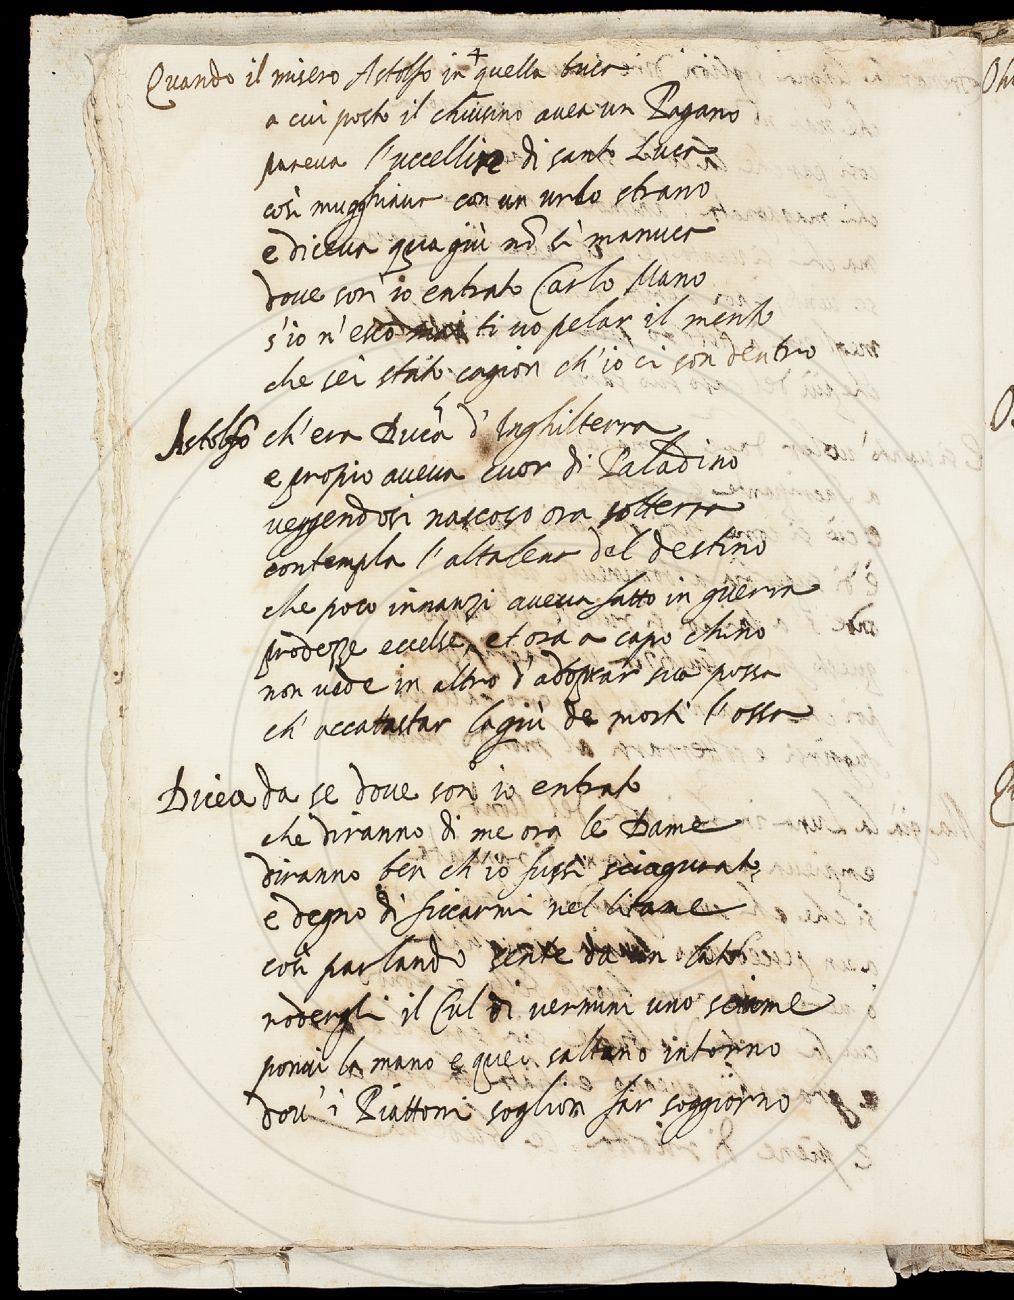 Quando il misero Astolfo in quella buca
a cui posto il chiusino avea un Pagano
pareva l'uccellin di santo Luca
così mugghiava con un urlo strano
e diceva qua giù nõ si manuca
dove son io entrato Carlo Mano
s'io n'esco mai ti vo pelar il mento
che sei stato cagion ch'io ci son dentro
Astolfo ch'era Duca d'Inghilterra
e propio aveva cuor di Paladino
veggendosi nascoso ora sotterra
contempla l'altalena del destino
che poco innanzi aveva fatto in guerra
prodezze eccelse, et ora a capo chino
non vede in altro d'adoprar sua possa
ch'accatastar lagiù de morti l'ossa
Dicea da se dove son io entrato
che diranno di me ora le Dame
diranno ben ch'io fussi sciagurato
e degno di ficcarmi nel litame
così parlando sente da un lato
rodergli il Cul di vermini uno sciame
ponvi la mano e quei saltano intorno
dov'i Piattoni soglion far soggiorno